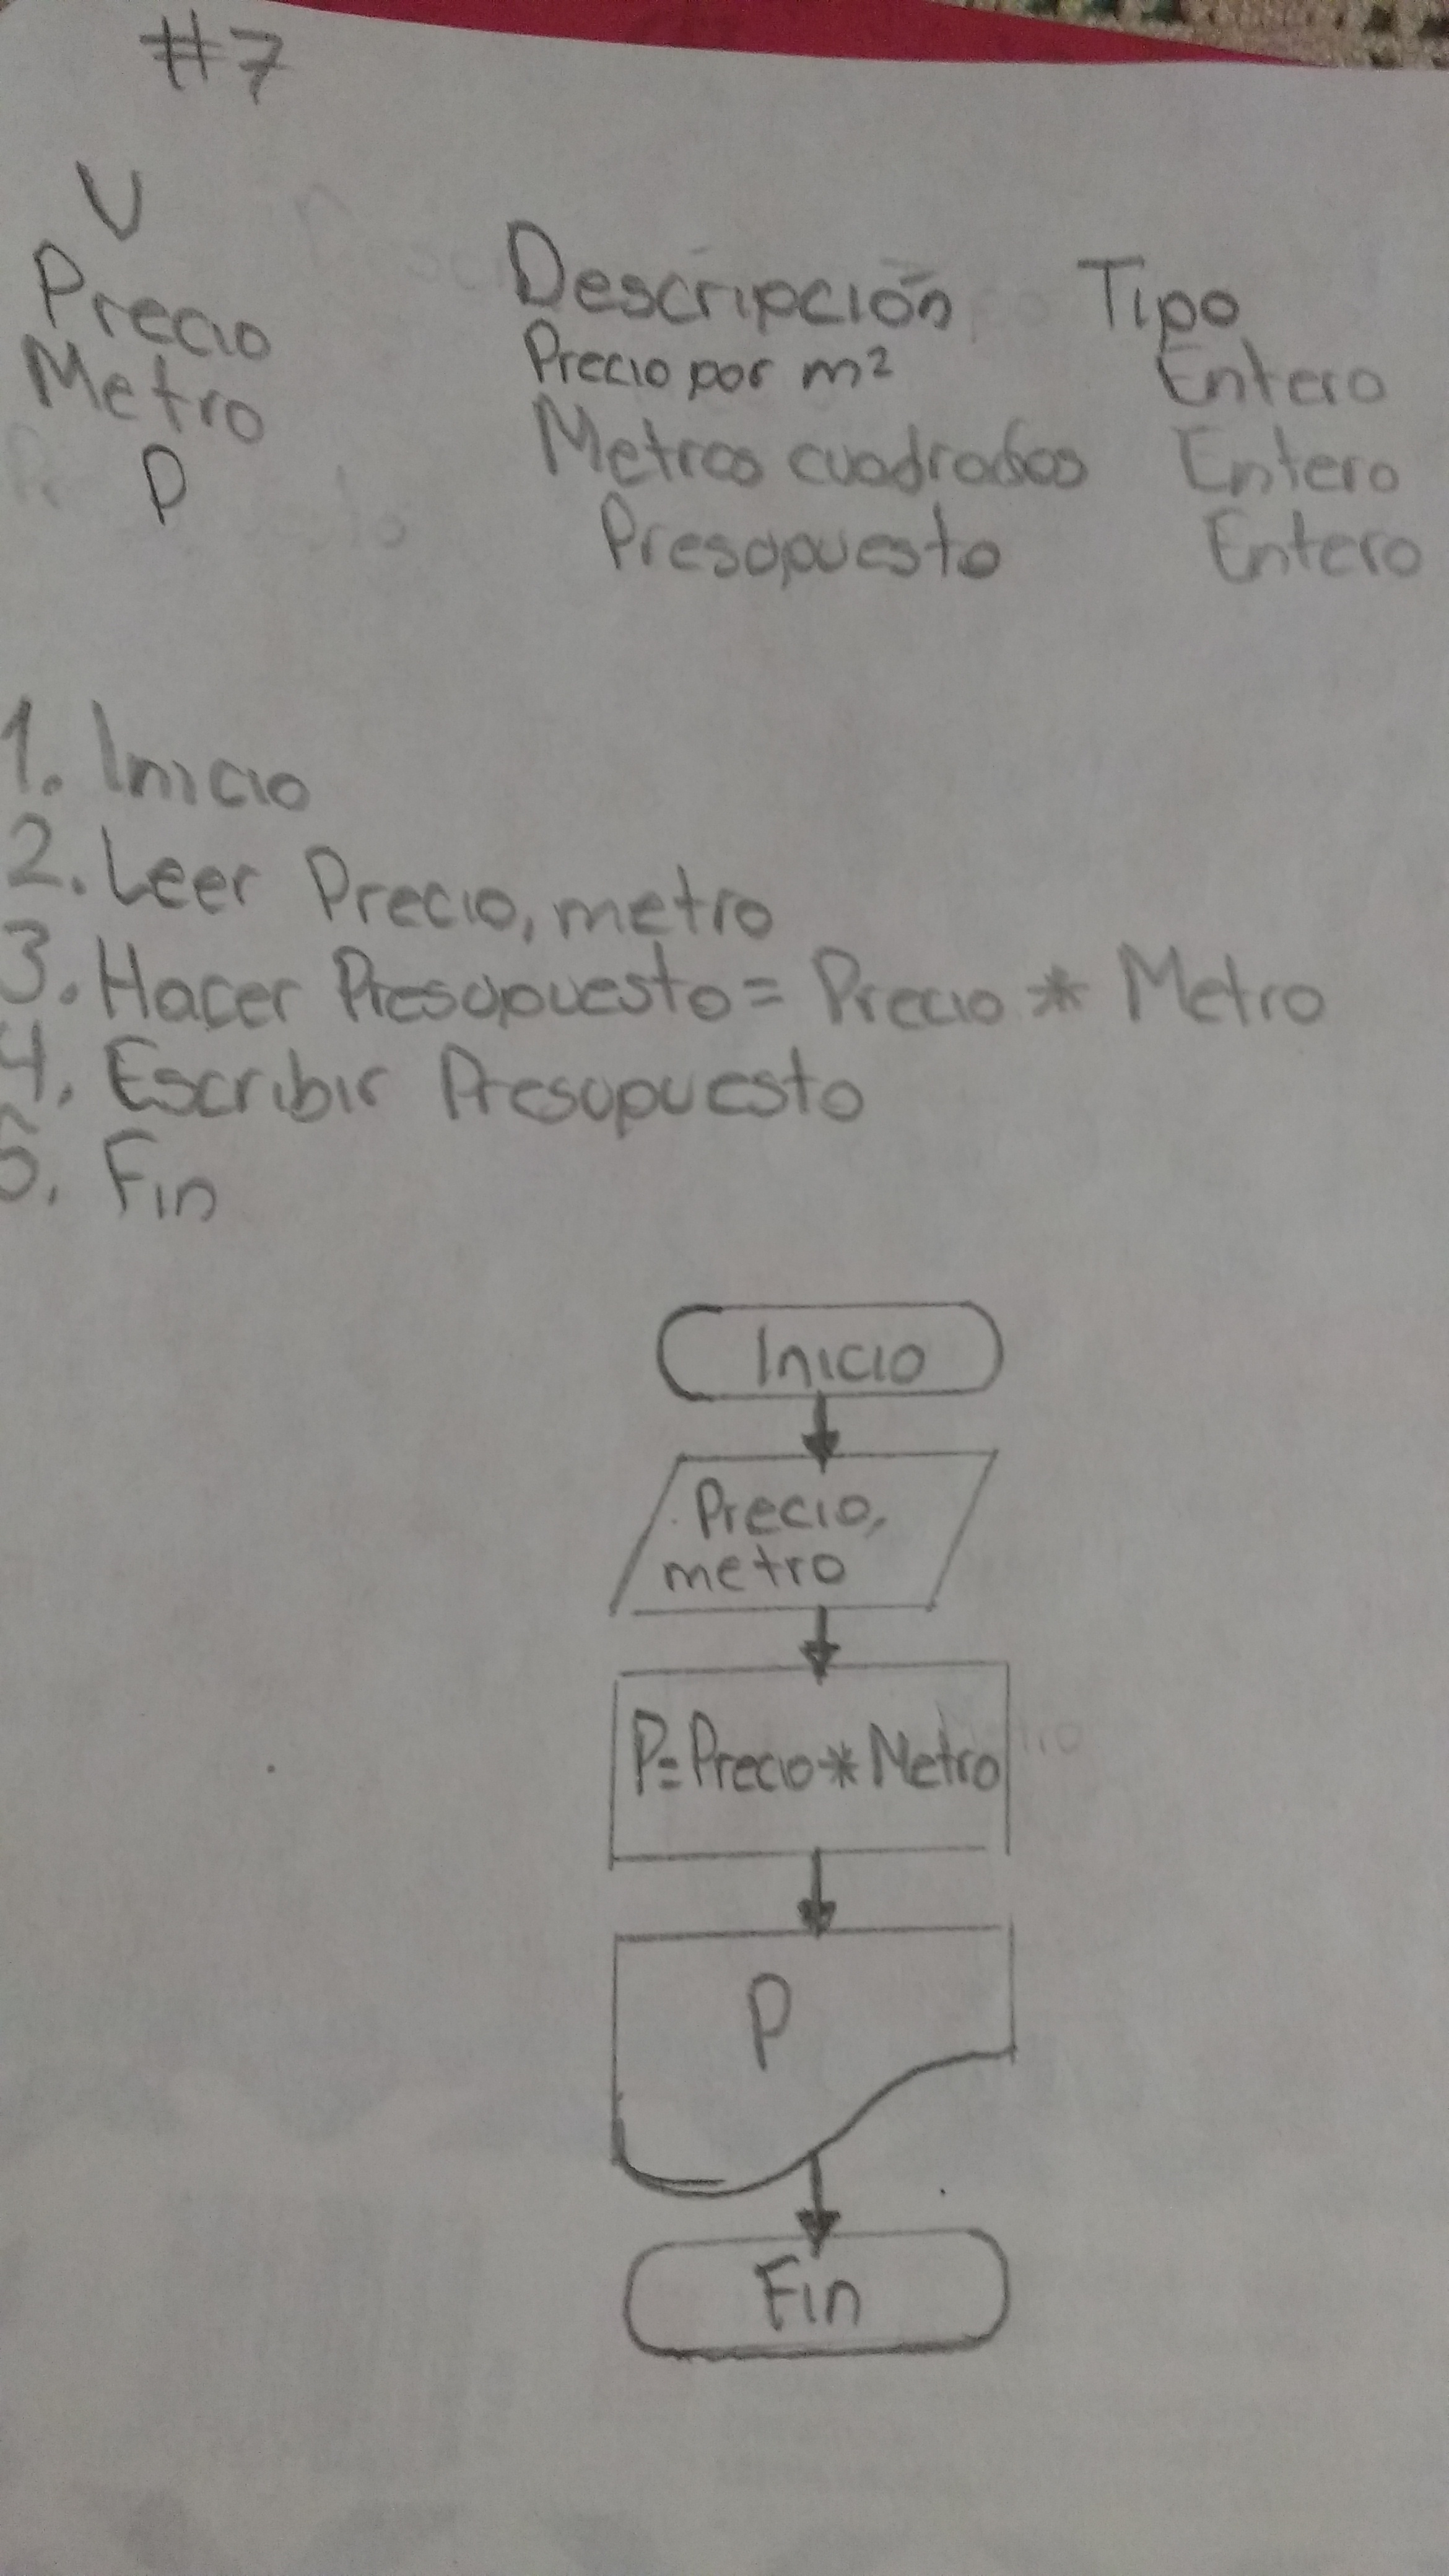 #7
V
Descripción Tipo
Precio Precio por m² Entero
Metro Metros cuadrados Entero
P Presupuesto Entero
1. Inicio
2. Leer Precio, metro
3. Hacer Presupuesto = Precio * Metro
4. Escribir Presupuesto
5. Fin
Inicio
Precio,
metro
P=Precio*Metro
P
Fin